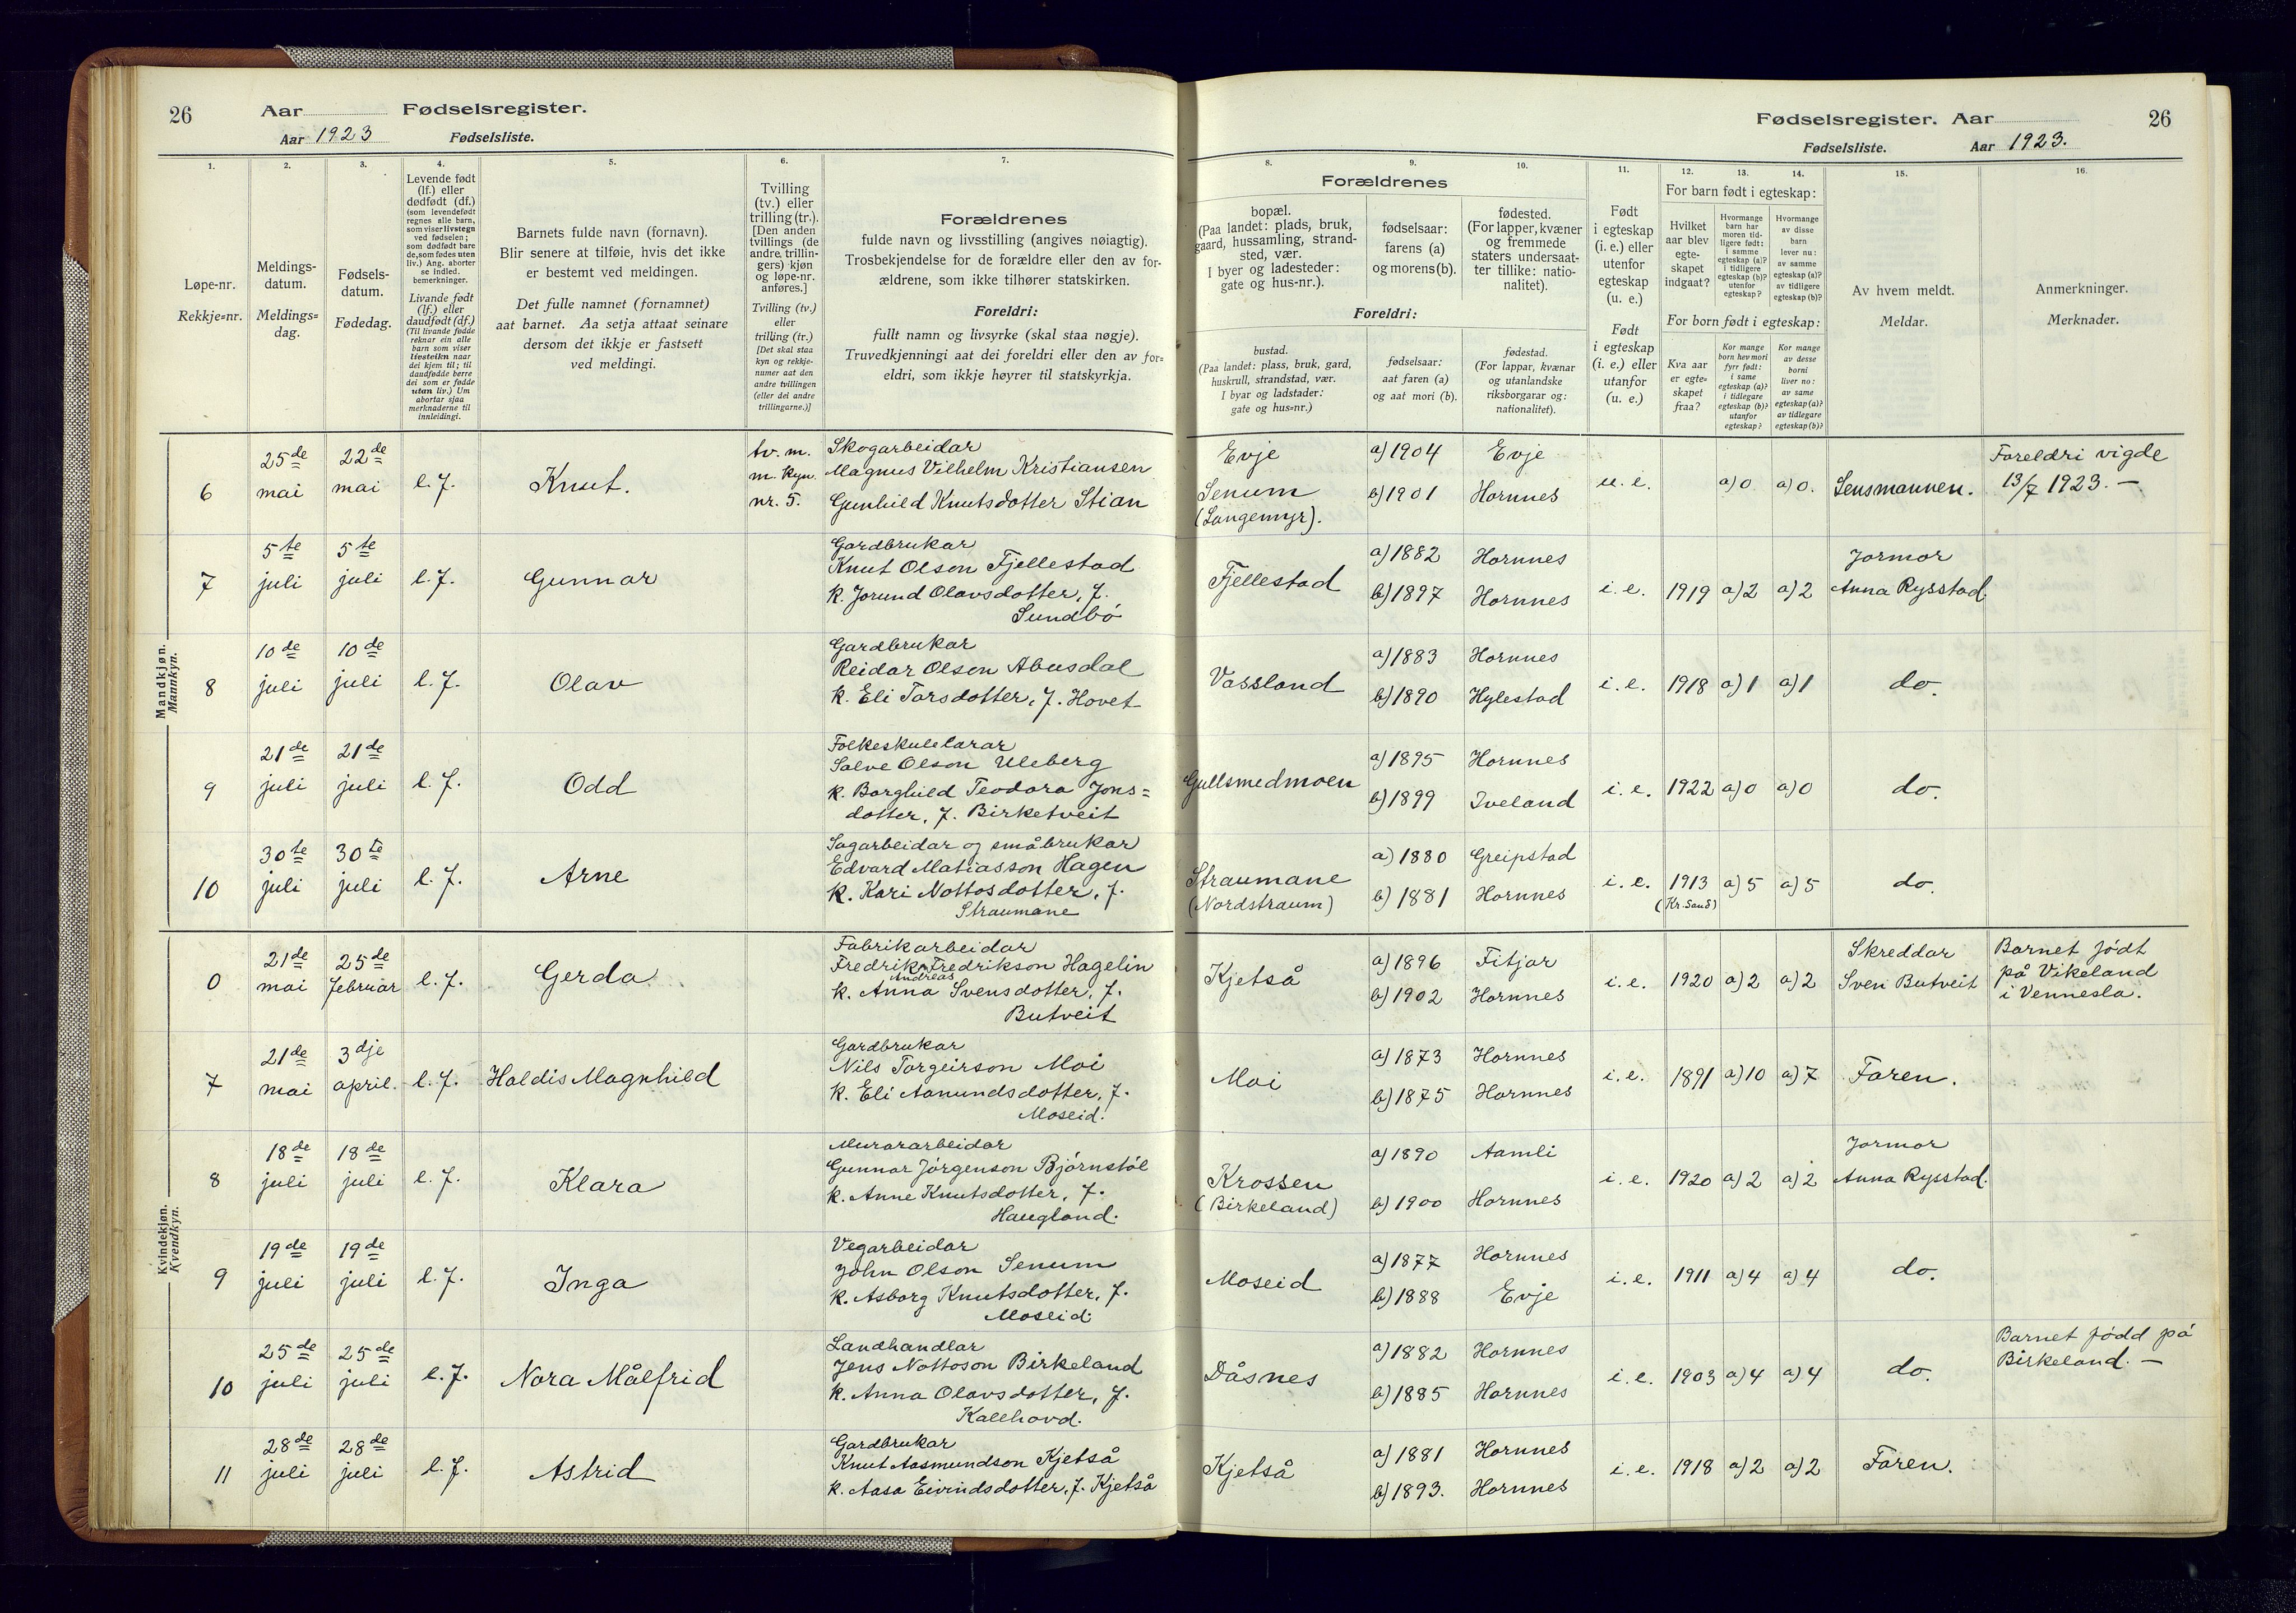 26
Aar Fødselsregister.
Aar 1923 Fødselsliste.
1.
2.
3.
4.
5.
6.
7.
Løpe-nr.
Rekkje=nr.
Meldings-
datum.
Meldings=
dag.
Fødsels-
datum.
Fødedag.
Levende født
(lf.) eller
dødfødt (df.)
(som levendefødt
regnes alle barn,
som viser livstegn
ved fødselen;
som dødfødt bare
de, som fødes uten
liv.) Ang. aborter
se indled.
bemerkninger.
Livande født
(lf.) eller
daudfødt (df.)
(Til livande fødde
reknar ein alle
barn som viser
livsteikn naar
dei kjem til; til
daudfødde berre
dei som er fødde
utan liv.) Um
abortar sjaa
merknaderne til
innleidingi.
Barnets fulde navn (fornavn).
Blir senere at tilføie, hvis det ikke
er bestemt ved meldingen.
Det fulle namnet (fornamnet)
aat barnet. Aa setja attaat seinare
dersom det ikkje er fastsett
ved meldingi.
Tvilling
(tv.) eller
trilling (tr.).
[Den anden
tvillings (de
andre trillin-
gers) kjøn
og løpe-nr.
anføres.]
Tvilling (tv.)
eller
trilling (tr.)
[Det skal staa
kyn og rekkje-
numer aat den
andre tvillingen
(eller dei andre
trillingarne.)]
Forældrenes
fulde navn og livsstilling (angives nøiagtig).
Trosbekjendelse for de forældre eller den av for-
ældrene, som ikke tilhører statskirken.
Foreldri:
fullt namn og livsyrke (skal staa nøgje).
Truvedkjenningi aat dei foreldri eller den av for=
eldri, som ikkje høyrer til statskyrkja.
Mandkjøn.
Mannkyn.
6
25de
mai
22de
mai
l. f.
Knut.
tv. m.
m. kyn.
nr. 5.
Skogarbeidar
Magnus Vilhelm Kristiansen
Gunhild Knutsdotter Stian
7
5te
juli
5te
juli
l. f.
Gunnar
Gardbrukar
Knut Olson Fjellestad
k. Jorund Olavsdotter, f.
Sundbö
8
10de
juli
10de
juli
l. f.
Olav
Gardbrukar
Reidar Olson Abusdal
k. Eli Tarsdotter, f. Hovet
9
21de
juli
21de
juli
l. f.
Odd
Folkeskulelærar
Salve Olson Uleberg
k. Borghild Teodora Jons=
dotter, f. Birketveit
10
30te
juli
30te
juli
l. f.
Arne
Sagarbeidar og småbrukar
Edvard Matiasson Hagen
k. Kari Nottosdotter, f.
Straumane
Kvindekjøn.
Kvendkyn.
0
21de
mai
25de
februar
l. f.
Gerda
Fabrikarbeidar
Fredrik Fredrikson Hagelin
Andreas
k. Anna Svensdotter, f.
Butveit
7
21de
mai
3dje
april.
l. f.
Haldis Magnhild
Gardbrukar
Nils Torgeirson Moi
k. Eli Aanundsdotter, f.
Moseid.
8
18de
juli
18de
juli
l. f.
Klara
Murararbeidar
Gunnar Jörgenson Björnstöl
k. Anne Knutsdotter, f.
Haugland.
9
19de
juli
19de
juli
l. f.
Inga
Vegarbeidar
John Olson Senum
k. Asborg Knutsdotter, f.
Moseid.
10
25de
juli
25de
juli
l. f.
Nora Målfrid
Landhandlar
Jens Nottoson Birkeland
k. Anna Olavsdotter, f.
Kallhovd.
11
28de
juli
28de
juli
l. f.
Astrid
Gardbrukar
Knut Aasmundson Kjetså
k. Aasa Eivindsdotter, f. Kjetså
Fødselsregister. Aar 26
Fødselsliste. Aar 1923.
8.
9.
10.
11.
12.
13.
14.
15.
16.
Forældrenes
bopæl.
(Paa landet: plads, bruk,
gaard, hussamling, strand-
sted, vær.
I byer og ladesteder:
gate og hus-nr.).
fødselsaar:
farens (a)
og morens (b).
fødested.
(For lapper, kvæner
og fremmede
staters undersaat-
ter tillike: natio-
nalitet).
Foreldri:
bustad.
(Paa landet: plass, bruk, gard,
huskrull, strandstad, vær.
I byar og ladstader:
gate og hus=nr.)
fødselsaar:
aat faren (a)
og aat mori (b).
fødestad.
(For lappar, kvænar
og utanlandske
riksborgarar og:
nationalitet).
Født
i egteskap
(i. e.) eller
utenfor
egteskap
(u. e.)
Født
i egteskap
(i. e.) eller
utanfor
(u. e.)
For barn født i egteskap:
Hvilket
aar blev
egte-
skapet
indgaat?
Hvormange
barn har
moren tid-
ligere født:
i samme
egteskap (a)?
i tidligere
egteskap (b)?
utenfor
egteskap?
Hvormange
av disse
barn
lever nu:
av samme
egteskap (a)?
av tidligere
egteskap (b)?
For born født i egteskap:
Kva aar
er egte=
skapet
fraa?
Kor mange
born hev mori
fyrr født:
i same
egteskap (a)?
i tidlegare
egteskap (b)?
utanfor
egteskap?
Kor mange
av desse
borni
liver no:
av same
egteskap (a)?
av tidlegare
egteskap (b)?
Av hvem meldt.
Meldar.
Anmerkninger.
Merknader.
Evje
Senum
(Langemyr).
a) 1904
b) 1901
Evje
Hornnes
u. e.
a) 0
a) 0.
Lensmannen.
Foreldri vigde
13/7 1923. —
Fjellestad
a) 1882
b) 1897
Hornnes
Hornnes
i. e.
1919
a) 2
a) 2
Jormor
Anna Rysstad.
Vassland
a) 1883
b) 1890
Hornnes
Hylestad
i. e.
1918
a) 1
a) 1
do.
Gullsmedmoen
a) 1895
b) 1899
Hornnes
Iveland
i. e.
1922
a) 0
a) 0
do.
Straumane
(Nordstraum)
a) 1880
b) 1881
Greipstad
Hornnes
i. e.
1913
(Kr.sand)
a) 5
a) 5
do.
Kjetså
a) 1896
b) 1902
Fitjar
Hornnes
i. e.
1920
a) 2
a) 2
Skreddar
Sven Butveit
Barnet født
på Vikeland
i Vennesla.
Moi
a) 1873
b) 1875
Hornnes
Hornnes
i. e.
1891
a) 10
a) 7
Faren.
Krossen
(Birkeland)
a) 1890
b) 1900
Aamli
Hornnes
i. e.
1920
a) 2
a) 2
Jormor
Anna Rysstad.
Moseid
a) 1877
b) 1888
Hornnes
Evje
i. e.
1911
a) 4
a) 4
do.
Dåsnes
a) 1882
b) 1885
Hornnes
Hornnes
i. e.
1903
a) 4
a) 4
do.
Barnet fødd på
Birkeland. —
Kjetså
a) 1881
b) 1893.
Hornnes
Hornnes
i. e.
1918
a) 2
a) 2
Faren.